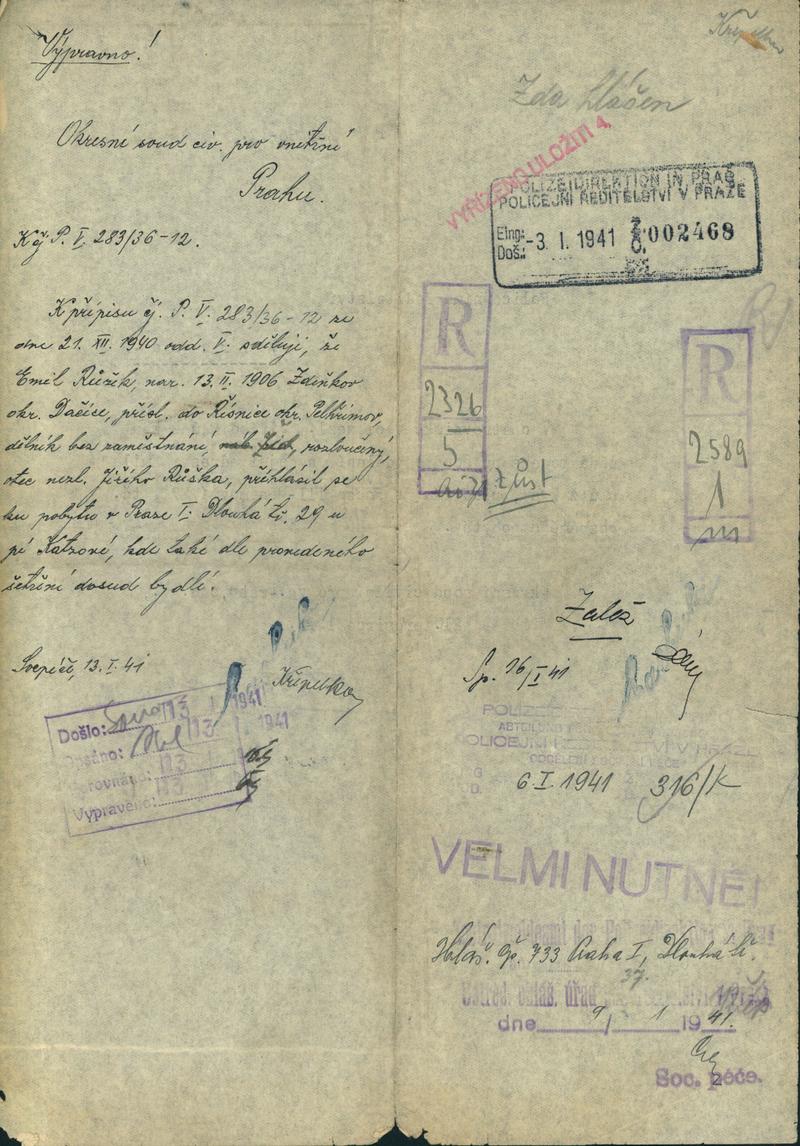 Výpravno!
Okresní soud civ. pro vnitřní
Prahu.
K čj P. V. 283/36-12.
K přípisu čj. P. V. 283/36-12 ze
dne 21. XII. 1940 odd. V. sděluji, že
Emil Růžek, nar. 13. II. 1906 Zdeňkov
okr. Dačice, přísl. do Řísnice okr. Pelhřimov,
dělník bez zaměstnání, rozloučený,
otec nezl. Jiřího Růžka, přihlásil se
ku pobytu v Praze I. Dlouhá tř. 29 u
pí Katzové, kde také dle provedeného
šetření dosud bydlí.
13. I. 41
Křipelka
Došlo: 13 I. 1941
13 1941
Vypraveno:
Zda hlášen
VYŘÍZENO ULOŽITI 4.
POLIZEIDIREKTION IN PRAG
POLICEJNÍ ŘEDITELSTVÍ V PRAZE
Eing.: Doš.: -3. I. 1941 002468
R
2326
5
zjist
R
2589
1
III
Založ
Sp. 16/I 41
6. I. 1941 316/K
VELMI NUTNÉ!
Hláš. čp. 733 Praha I, Dlouhá tř.
37.
Ústřed. ohlaš. úřad
dne 9/ 1 1941.
Soc. péče.
2